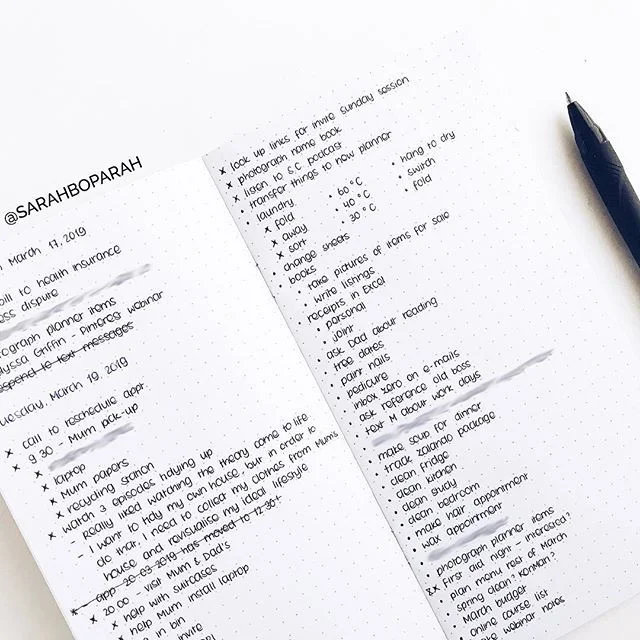 @SARAHBOPARAH
March 17, 2019
bill to health insurance
dispute
photograph planner items
Alyssa Griffin - Pinterest webinar
respond to text messages
Tuesday, March 19, 2019
x call to reschedule appt.
x 9:30 - Mum pick-up
x laptop
x Mum papers
x recycling station
x watch 3 episodes tidying up
- Really liked watching the theory come to life
- I want to tidy my own house, but in order to
do that, I need to collect my clothes from Mums
house and revisualise my ideal lifestyle
app 20-03-2019 has moved to 12:30!
x 20:00 - visit Mum & Dads
x help with suitcases
x help Mum install laptop
in bin
invite
x look up links for invite Sunday session
x photograph name book
x listen to S.C. podcast
• transfer things to new planner
• laundry
x fold • 60°C • hang to dry
x away • 40°C • switch
x sort • 30°C • fold
• change sheets
• books
• take pictures of items for sale
• write listings
• receipts in Excel
• personal
• joint
• ask Dad about reading
• tree dates
• paint nails
• pedicure
• inbox zero on e-mails
• ask reference old boss
• text M about work days
• make soup for dinner
• track Zalando package
• clean fridge
• clean kitchen
• clean study
• clean bedroom
• make hair appointment
• wax appointment
• photograph planner items
x First aid night - interested?
• plan menu rest of March
• spring clean? KonMari?
• March budget
• online course list
webinar notes